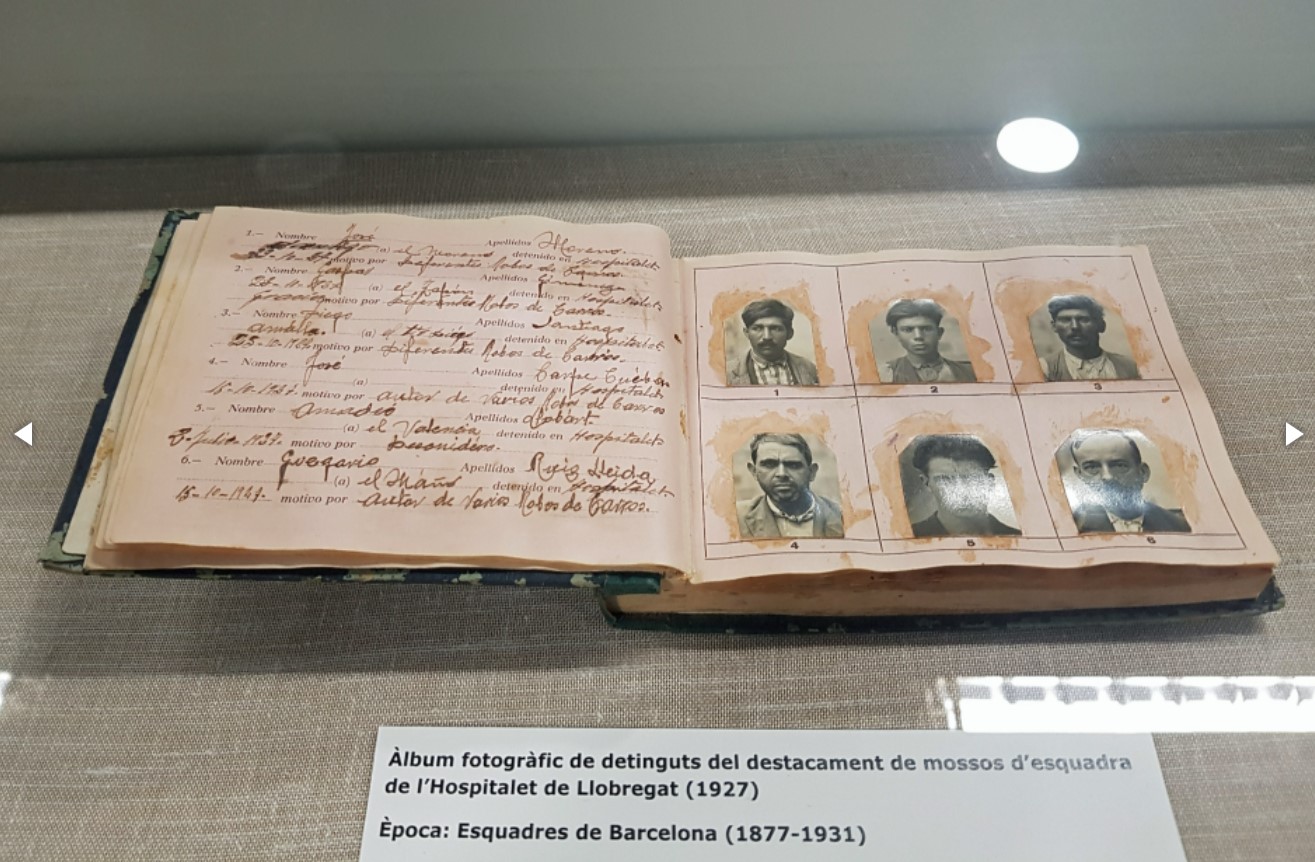 1.— Nombre José Apellidos Moreno.
(a) el Moreno detenido en Hospitalet
motivo por Diferentes Robos de Carros.
2.— Nombre Apellidos Gimenez
(a) el detenido en Hospitalet
motivo por Diferentes Robos de Carros.
3.— Nombre Diego Apellidos Santiago
Amalia. (a) el detenido en Hospitalet
motivo por Diferentes Robos de Carros.
4.— Nombre José Apellidos
(a) detenido en Hospitalet
15-10-1927. motivo por autor de Varios Robos de Carros
5.— Nombre Amadeo Apellidos
(a) el Valencia detenido en Hospitalet
3-Julio-1927. motivo por
6.— Nombre Gregorio Apellidos Ruiz
(a) el Maño detenido en Hospitalet
15-10-1927. motivo por autor de Varios Robos de Carros.
1 2 3
4 5 6
Àlbum fotogràfic de detinguts del destacament de mossos d'esquadra
de l'Hospitalet de Llobregat (1927)
Època: Esquadres de Barcelona (1877-1931)